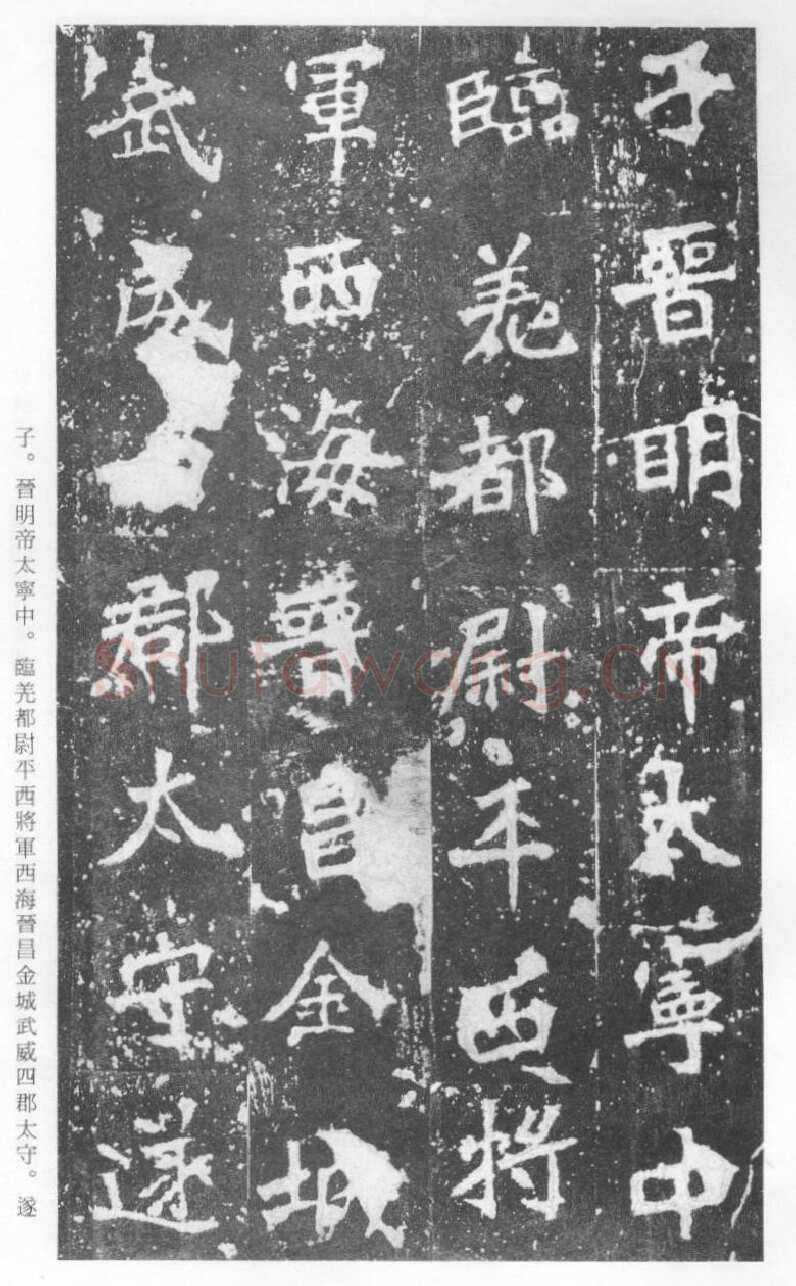 子晉明帝太寧中
臨羌都尉平西將
軍西海晉昌金城
武威四郡太守遂
子。晉明帝太寧中。臨羌都尉平西將軍西海晉昌金城武威四郡太守。遂
Shufawang.CN